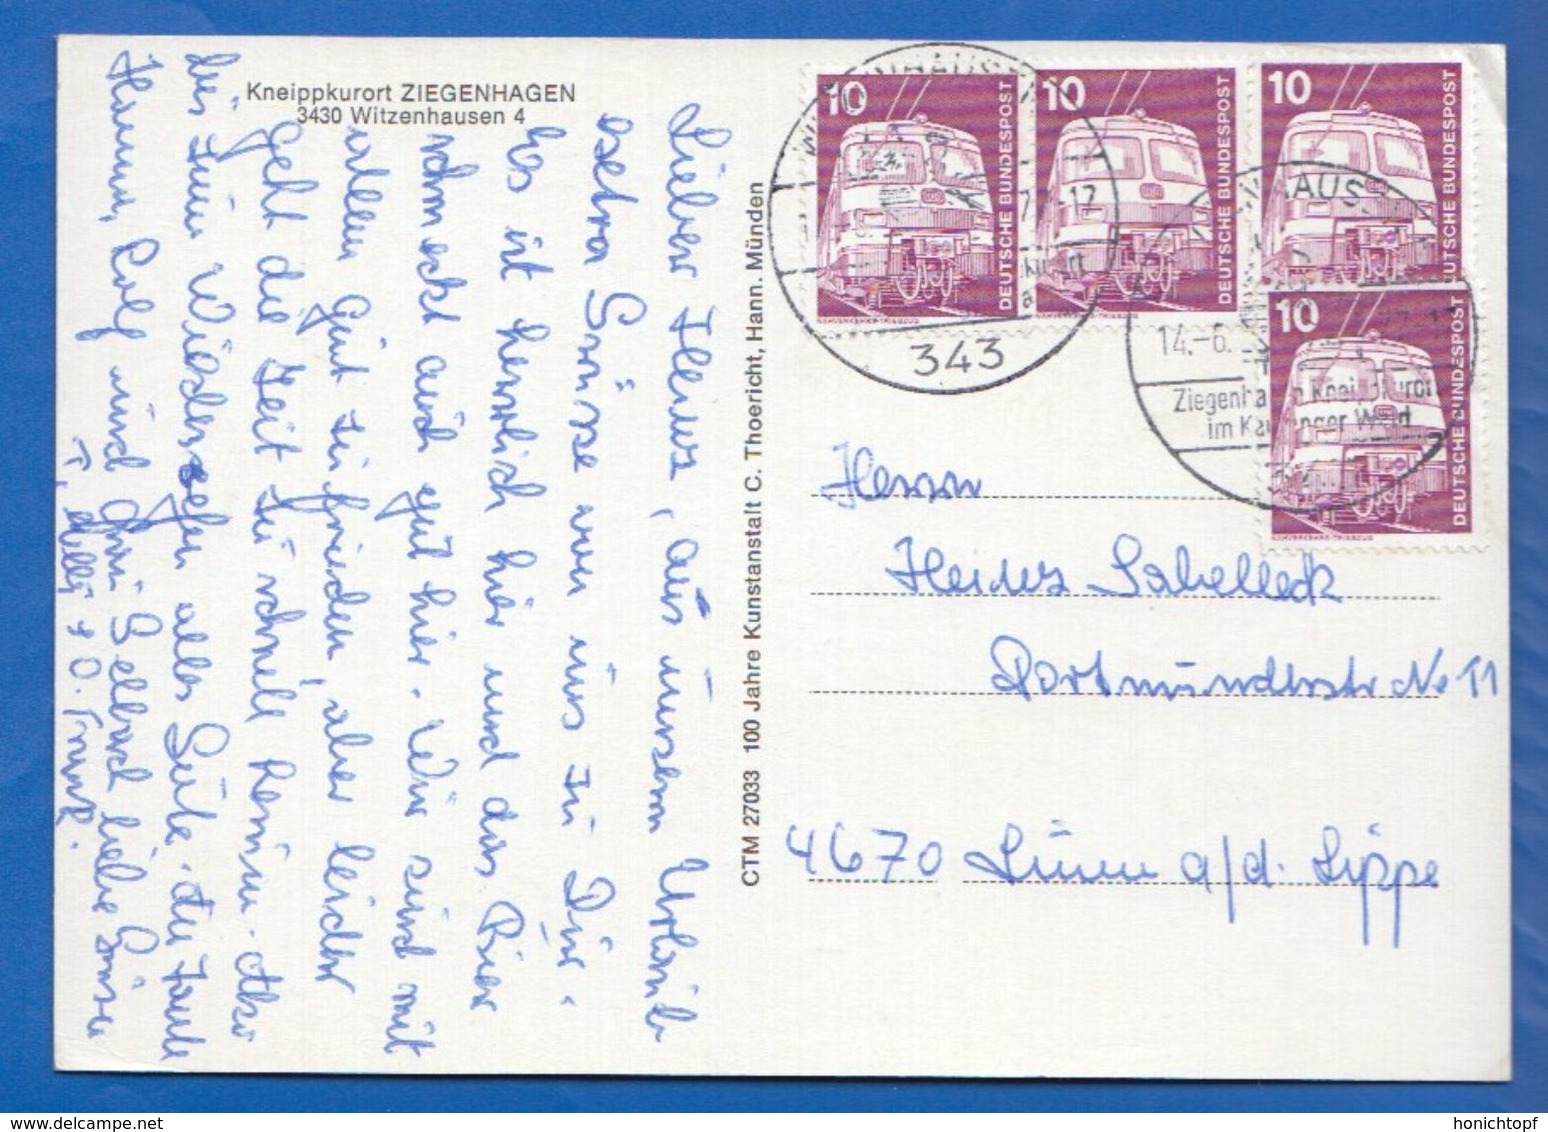 Kneippkurort ZIEGENHAGEN
3430 Witzenhausen 4
Lieber Heinz, aus unserm Urlaub
extra Grüsse von uns zu Dir.
Es ist herrlich hier und das Bier
schmeckt auch gut hier. Wir sind mit
allem gut zufrieden, aber leider
geht die Zeit zu schnell herum. Also
bis zum Wiedersehen alles Gute.
Hanna, Rolf und
liebe Grüsse
CTM 27033 100 Jahre Kunstanstalt C. Thoericht, Hann. Münden
10
DEUTSCHE BUNDESPOST
10
DEUTSCHE BUNDESPOST
10
DEUTSCHE BUNDESPOST
10
DEUTSCHE BUNDESPOST
343
14.-6.
Herrn
Heinz Sabelleck
Dortmunderstr No 11
4670 Lünen a/d. Lippe
honichtopf